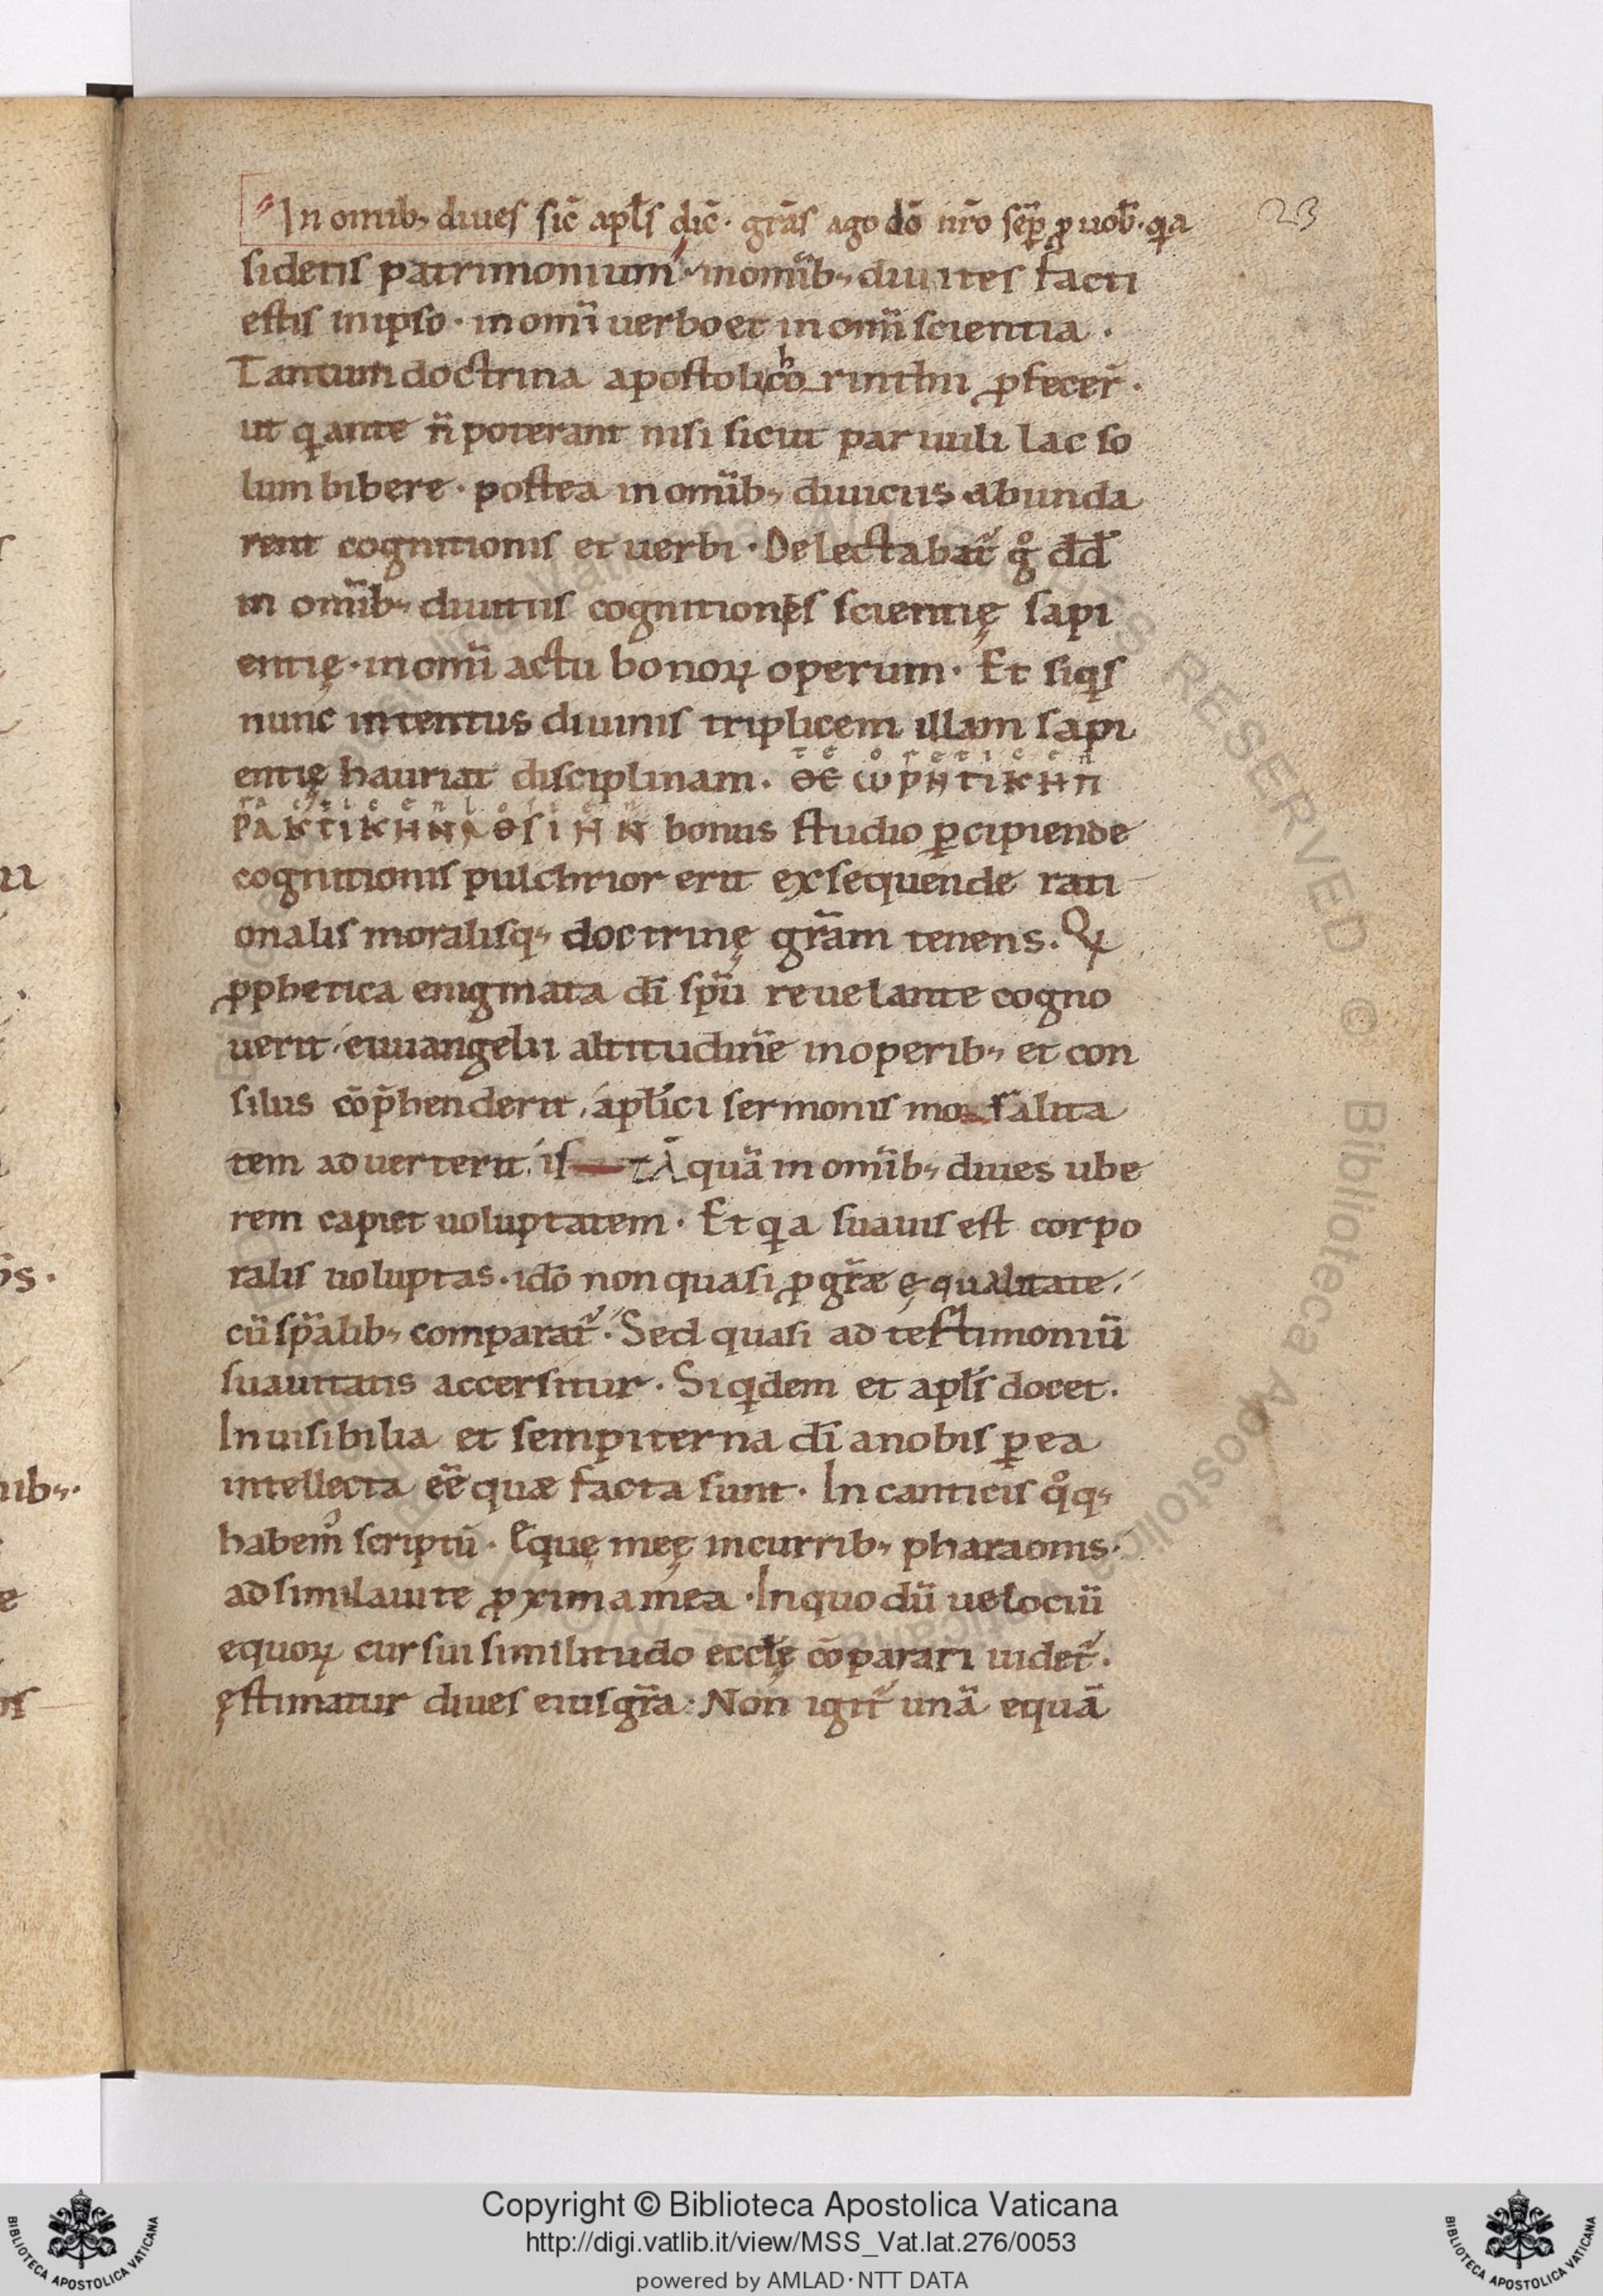 In omib; diues sic̄ apl̄s dic̄· grās ago dō nr̄o sēp ꝓ uob̄· qia
23
sidetis patrimonium· inomīb; diuites facti
estis inipso· inomī uerboet inomī scientia·
Tantum doctrina apostolica corinthii ꝓfecer̄·
ut qi ante n̄ poterant nisi sicut paruuli lac so
lum bibere· postea inomīb; diuiciis abunda
rent cognitionis et uerbi· Delectabat᷑ gͦ dd̄
in omīb; diuitiis cognitionis scientię sapi
entię· inomī actu bonoꝝ operum· Et siqis
nunc intentus diuinis triplicem illam sapi
teoreticen
entię hauriat disciplinam· ΘЄωРΗΤΙΚΗΠ
racticenlogicen
ΡΑΚΤΙΚΗΝΛΘSΙΗΝ bonus studio ꝑcipiende
cognitionis pulchrior erit exsequende rati
onalis moralisq; doctrinę grām tenens· Qi
ꝓphetica enigmata dī spū reuelante cogno
uerit, euuangelii altitudinē inoperib; et con
siliis cōp̄henderit, apl̄ici sermonis moralita
tem aduerterit, is tā quā inomīb; diues ube
rem capiet uoluptatem· Et qia suauis est corpo
ralis uoluptas· idō nonquasi ꝓ grāe ęqualitate,
cū spāalib; comparat᷑· Sed quasi ad testimoniū
suauitatis accersitur· Siqidem et apl̄s docet·
Inuisibilia et sempiterna dī anobis ꝑ ea
intellecta eē quæ facta sunt· In canticis qͦq;
habem᷒ scriptū· Eque meę incurrib; pharaonis·
adsimilauite ꝓxima mea· Inquo dū uelociū
equoꝝ cursui similitudo eccl̄ę cōparari uidet᷑·
ęstimatur diues eius grā· Non igit᷑ unā equā
Copyright © Biblioteca Apostolica Vaticana
http://digi.vatlib.it/view/MSS_Vat.lat.276/0053
powered by AMLAD·NTT DATA
BIBLIOTECA APOSTOLICA VATICANA
BIBLIOTECA APOSTOLICA VATICANA